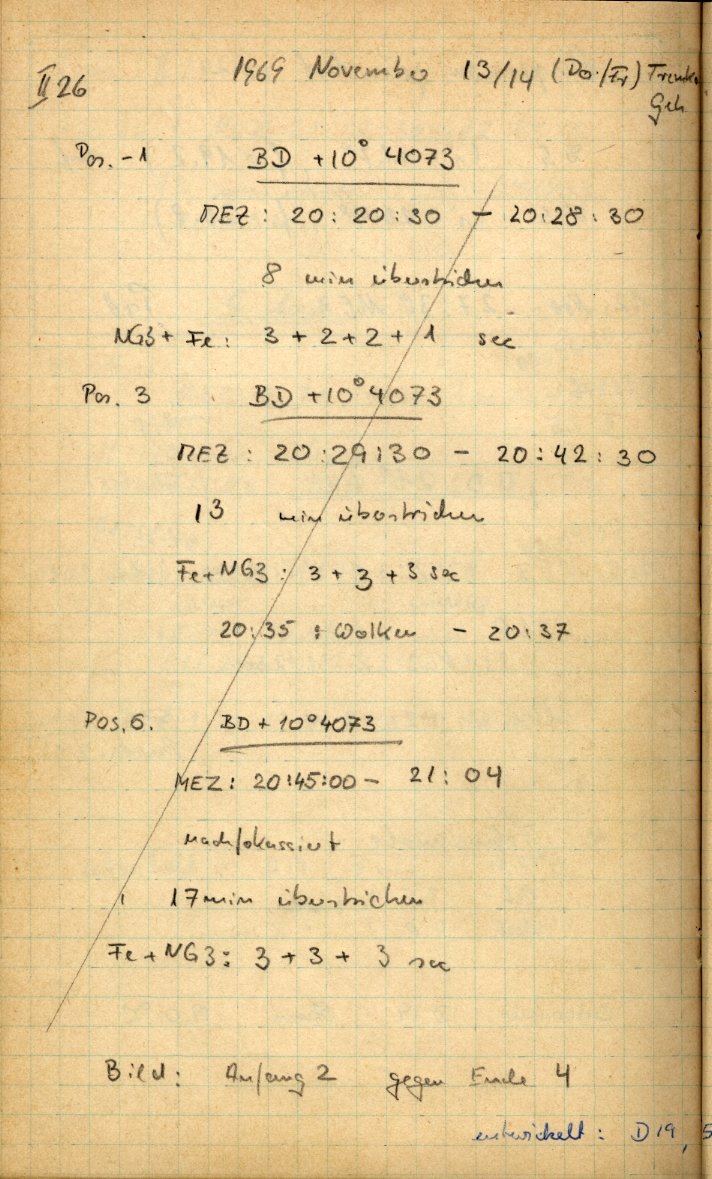 II 26
1969 November 13/14 (Do./Fr)
Geh
Pos. -1 BD +10° 4073
MEZ: 20:20:30 - 20:28:30
8 min überstrichen
NG3 + Fe: 3 + 2 + 2 + 1 sec
Pos. 3 BD +10° 4073
MEZ: 20:29:30 - 20:42:30
13 min überstrichen
Fe + NG3: 3 + 3 + 3 sec
20:35 : Wolken - 20:37
Pos. 6. BD + 10° 4073
MEZ: 20:45:00 - 21:04
nachfokussiert
17 min überstrichen
Fe + NG3: 3 + 3 + 3 sec
Bild: Anfang 2 gegen Ende 4
entwickelt: D19, 5